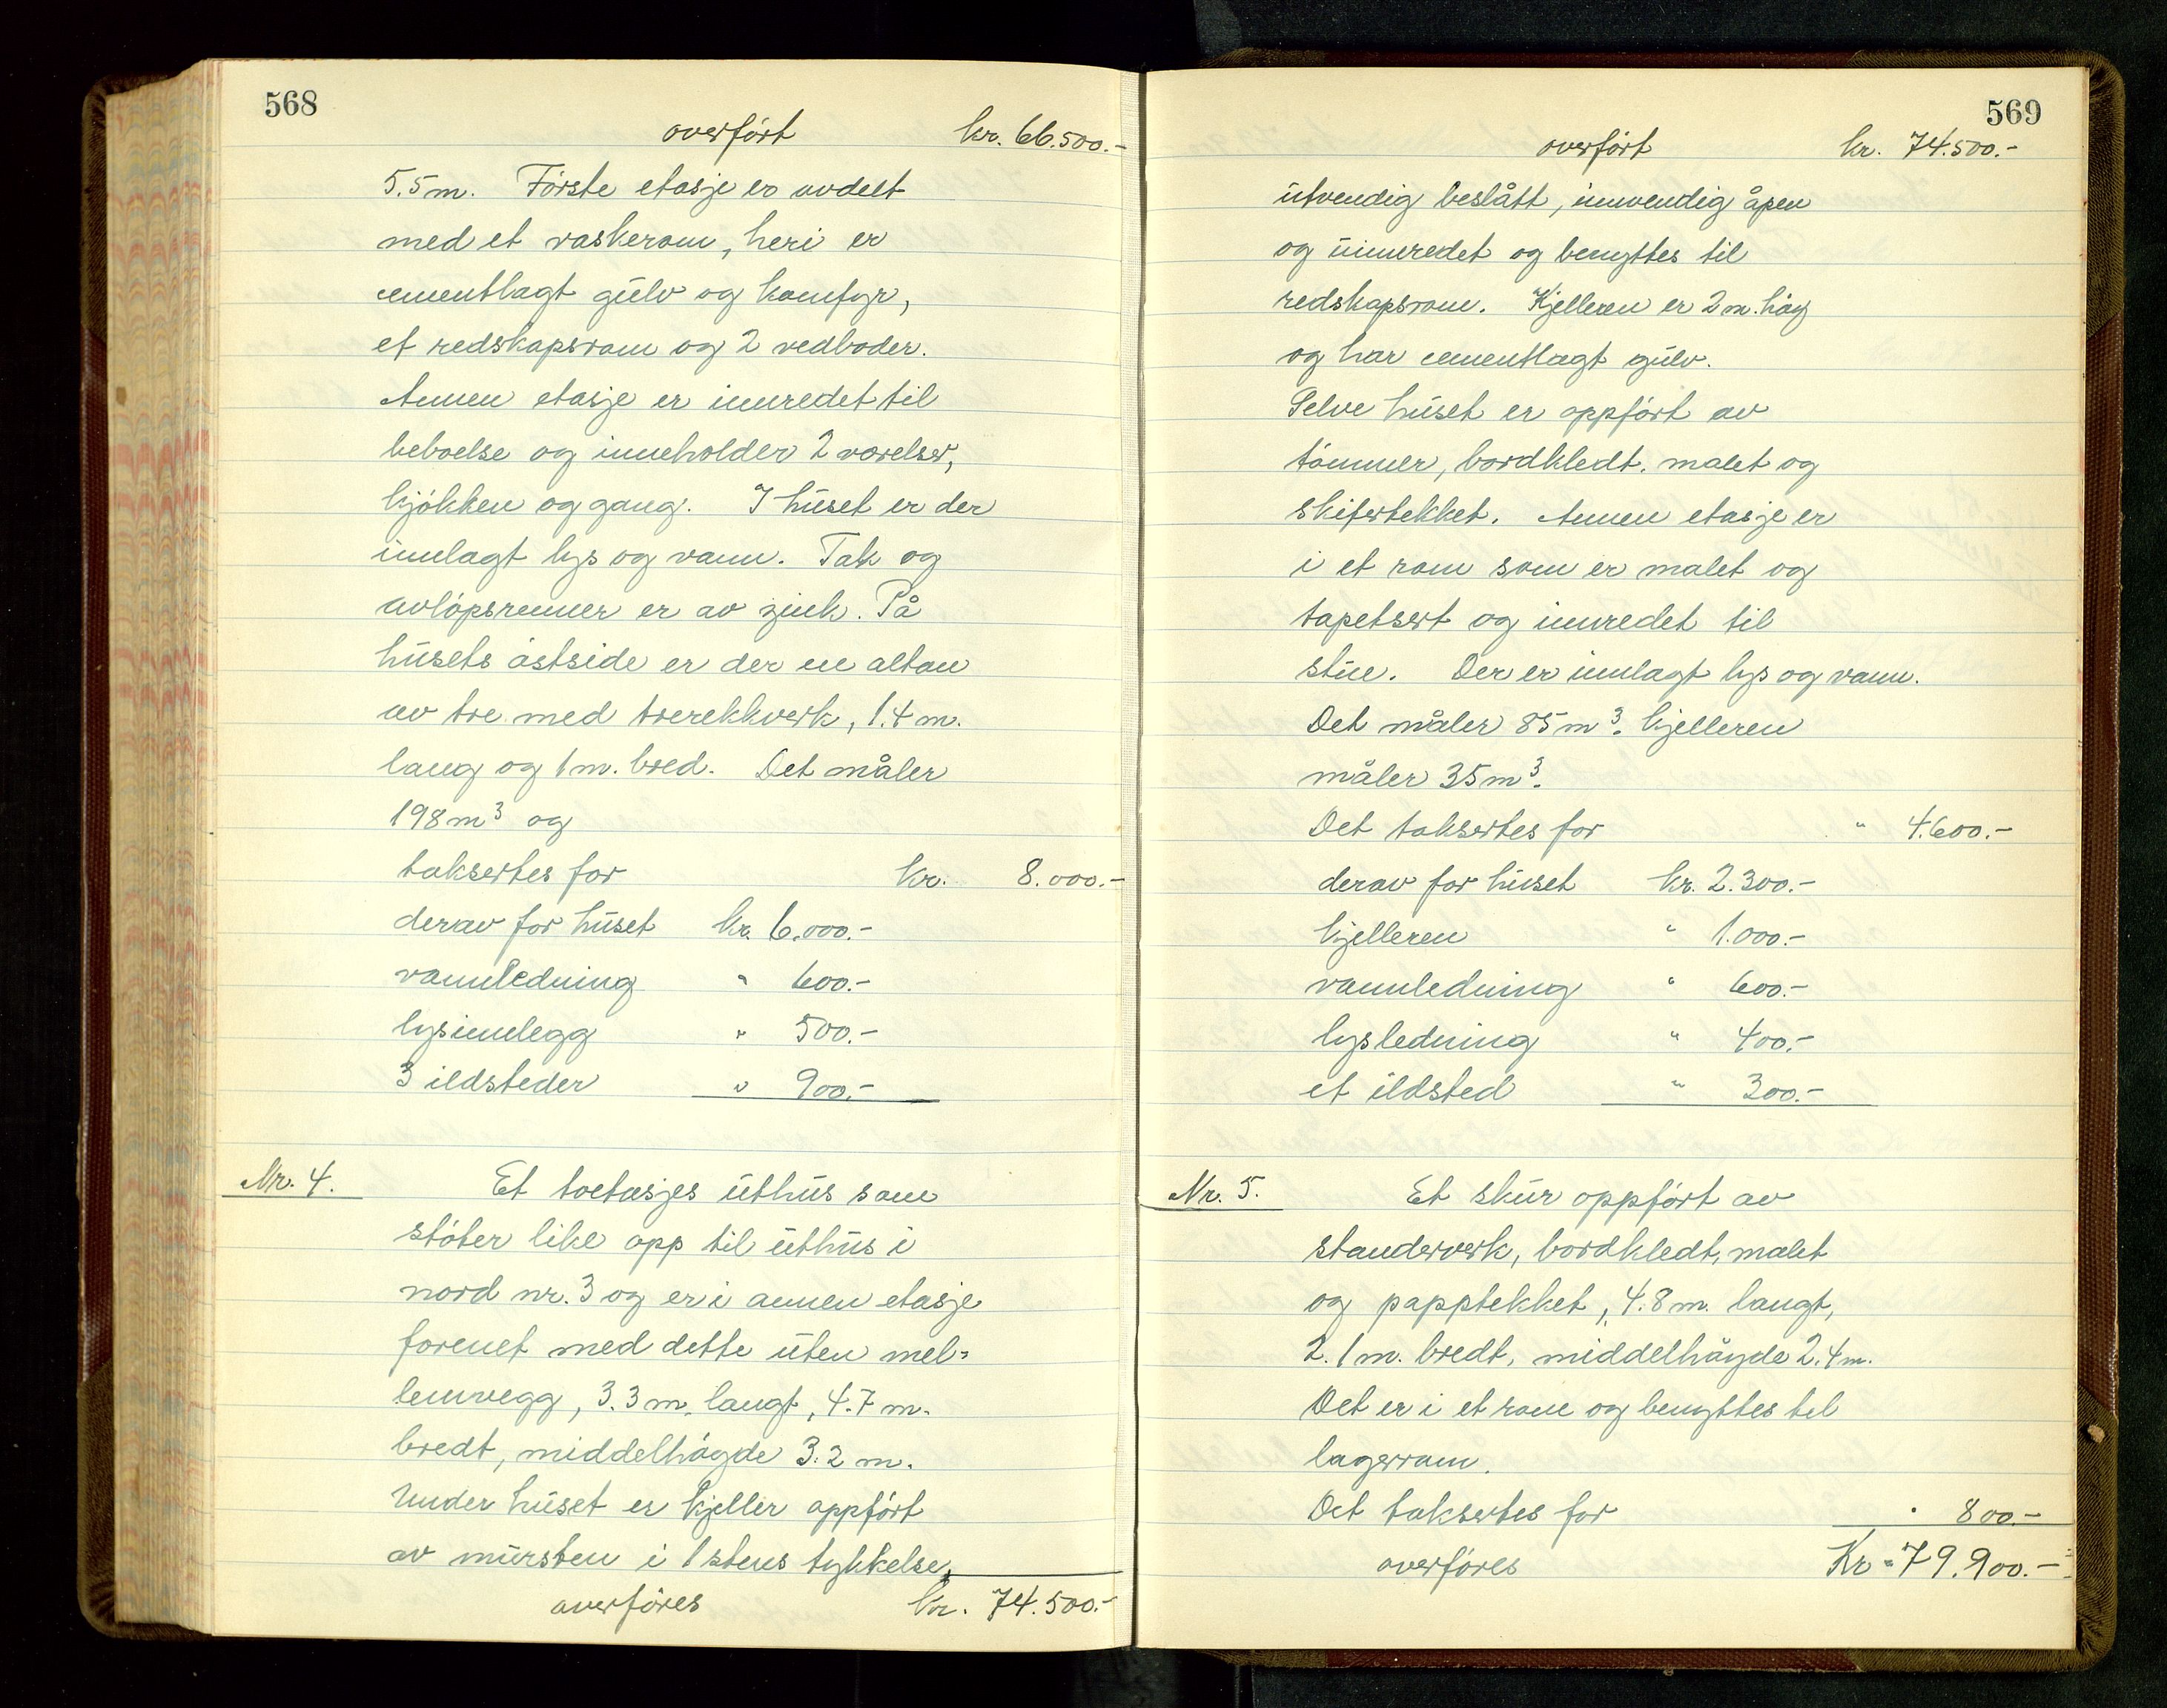 568
overført kr. 66.500.-
5.5 m. Første etasje er avdelt
med et vaskerom, heri er
cementlagt gulv og komfyr,
et redskapsrom og 2 vedboder.
Annen etasje er innredet til
beboelse og inneholder 2 værelser,
kjøkken og gang. I huset er der
innlagt lys og vann. Tak og
avløpsrenner er av zink. På
husets østside er der en altan
av tre med trerekkverk, 1.4 m.
lang og 1 m. bred. Det måler
198 m³ og
taksertes for kr. 8.000.-
derav for huset kr. 6.000.-
vannledning " 600.-
lysinnlegg " 500.-
3 ildsteder " 900.-
Nr. 4. Et toetasjes uthus som
støter like opp til uthus i
nord nr. 3 og er i annen etasje
forenet med dette uten mel-
lemvegg, 3.3 m. langt, 4.7 m.
bredt, middelhøyde 3.2 m.
Under huset er kjeller oppført
av mursten i 1 stens tykkelse,
overføres kr. 74.500.-
569
overført kr. 74.500.-
utvendig beslått, innvendig åpen
og uinnredet og benyttes til
redskapsrom. Kjelleren er 2 m. høy
og har cementlagt gulv.
Selve huset er oppført av
tømmer, bordkledt, malet og
skifertekket. Annen etasje er
i et rom som er malet og
tapetsert og innredet til
stue. Der er innlagt lys og vann.
Det måler 85 m³. kjelleren
måler 35 m³.
Det taksertes for " 4.600.-
derav for huset kr. 2.300.-
kjelleren " 1.000.-
vannledning " 600.-
lysledning " 400.-
et ildsted " 300.-
Nr. 5. Et skur oppført av
standerverk, bordkledt, malet
og papptekket, 4.8 m. langt,
2.1 m. bredt, middelhøyde 2.4 m.
Det er i et rom og benyttes til
lagerrom.
Det taksertes for " 800.-
overføres Kr. 79.900.-